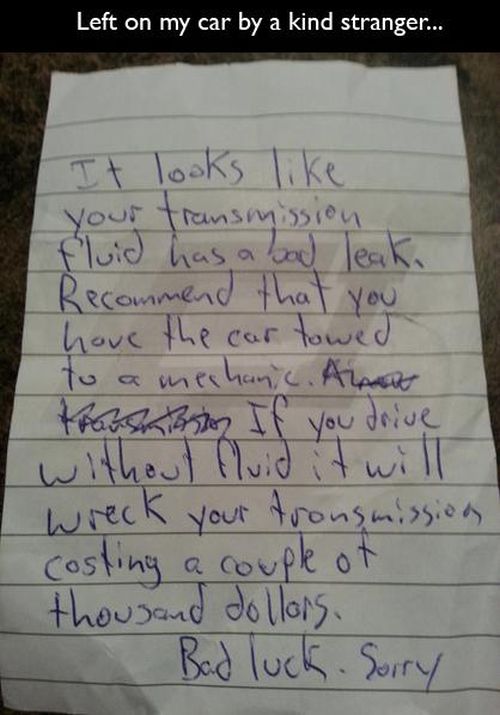 Left on my car by a kind stranger...
It looks like
your transmission
fluid has a bad leak.
Recommend that you
have the car towed
to a mechanic.
If you drive
without fluid it will
wreck your transmission
costing a couple of
thousand dollars.
Bad luck. Sorry